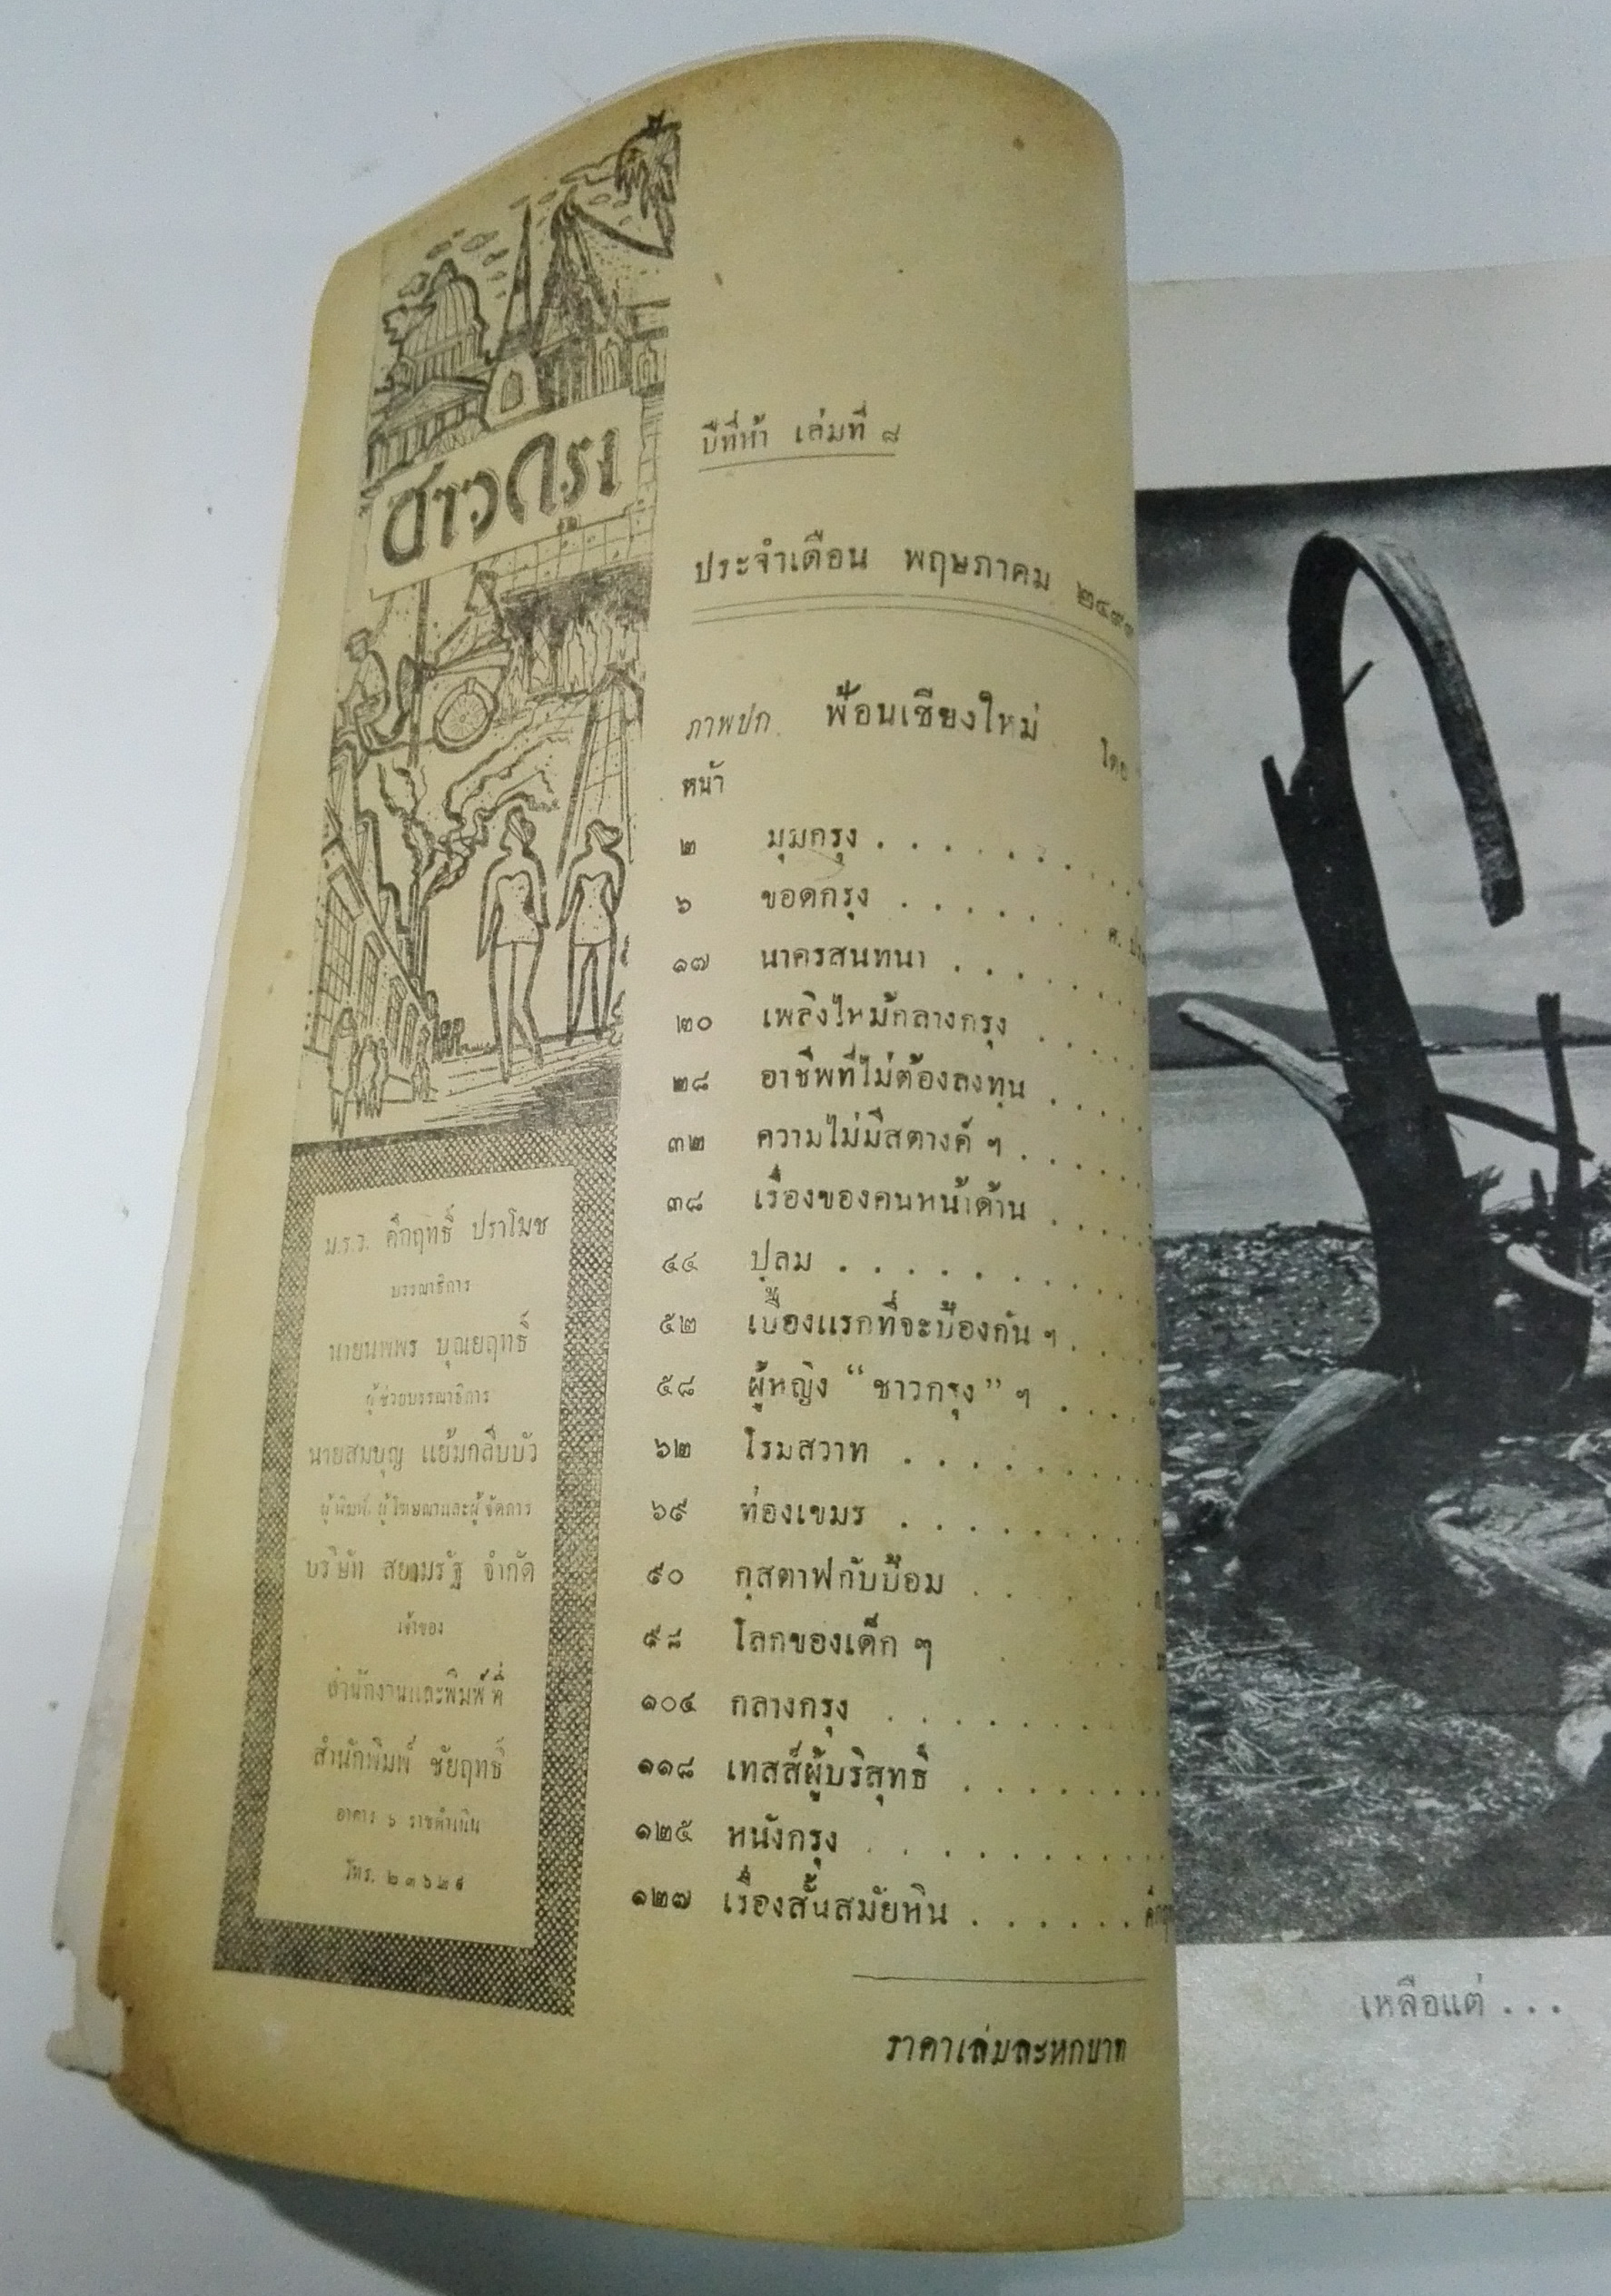 ชาวกรุง
ปีที่ห้า เล่มที่ ๘
ประจำเดือน พฤษภาคม
ภาพปก ฟ้อนเชียงใหม่ โดย
หน้า
๒ มุมกรุง
๖ ขอดกรุง
๑๗ นาครสนทนา
๒๐ เพลิงไหม้กลางกรุง
๒๘ อาชีพที่ไม่ต้องลงทุน
๓๒ ความไม่มีสตางค์ ฯ
๓๘ เรื่องของคนหน้าด้าน
๔๔ ปุลม
๕๒ เบื้องแรกที่จะป้องกัน ฯ
๕๘ ผู้หญิง “ชาวกรุง” ฯ
๖๒ โรมสวาท
๖๙ ท่องเขมร
๙๐ กุสตาฟกับป้อม
๙๘ โลกของเด็ก ๆ
๑๐๔ กลางกรุง
๑๑๘ เทสส์ผู้บริสุทธิ์
๑๒๕ หนังกรุง
๑๒๗ เรื่องสั้นสมัยหิน
ราคาเล่มละหกบาท
ม.ร.ว. คึกฤทธิ์ ปราโมช
บรรณาธิการ
นายนพพร บุณยฤทธิ์
ผู้ช่วยบรรณาธิการ
นายสมบุญ แย้มกลีบบัว
ผู้พิมพ์ ผู้โฆษณาและผู้จัดการ
บริษัท สยามรัฐ จำกัด
เจ้าของ
สำนักงานและพิมพ์ที่
สำนักพิมพ์ ชัยฤทธิ์
อาคาร ๖ ราชดำเนิน
โทร.
เหลือแต่ . . .